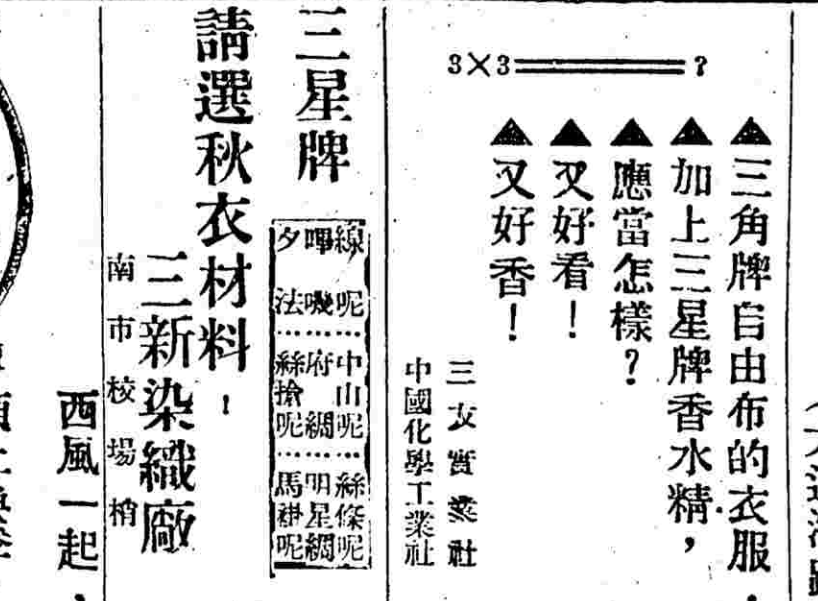 3×3＝?
▲三角牌自由布的衣服，
▲加上三星牌香水精，
▲應當怎樣？
▲又好看！
▲又好香！
三友實業社
中國化學工業社
三星牌
線呢……中山呢……絲條呢
嗶嘰……府綢……明星綢
夕法……絲搶呢……馬褲呢
請選秋衣材料！
三新染織廠
南市校場梢
西風一起，